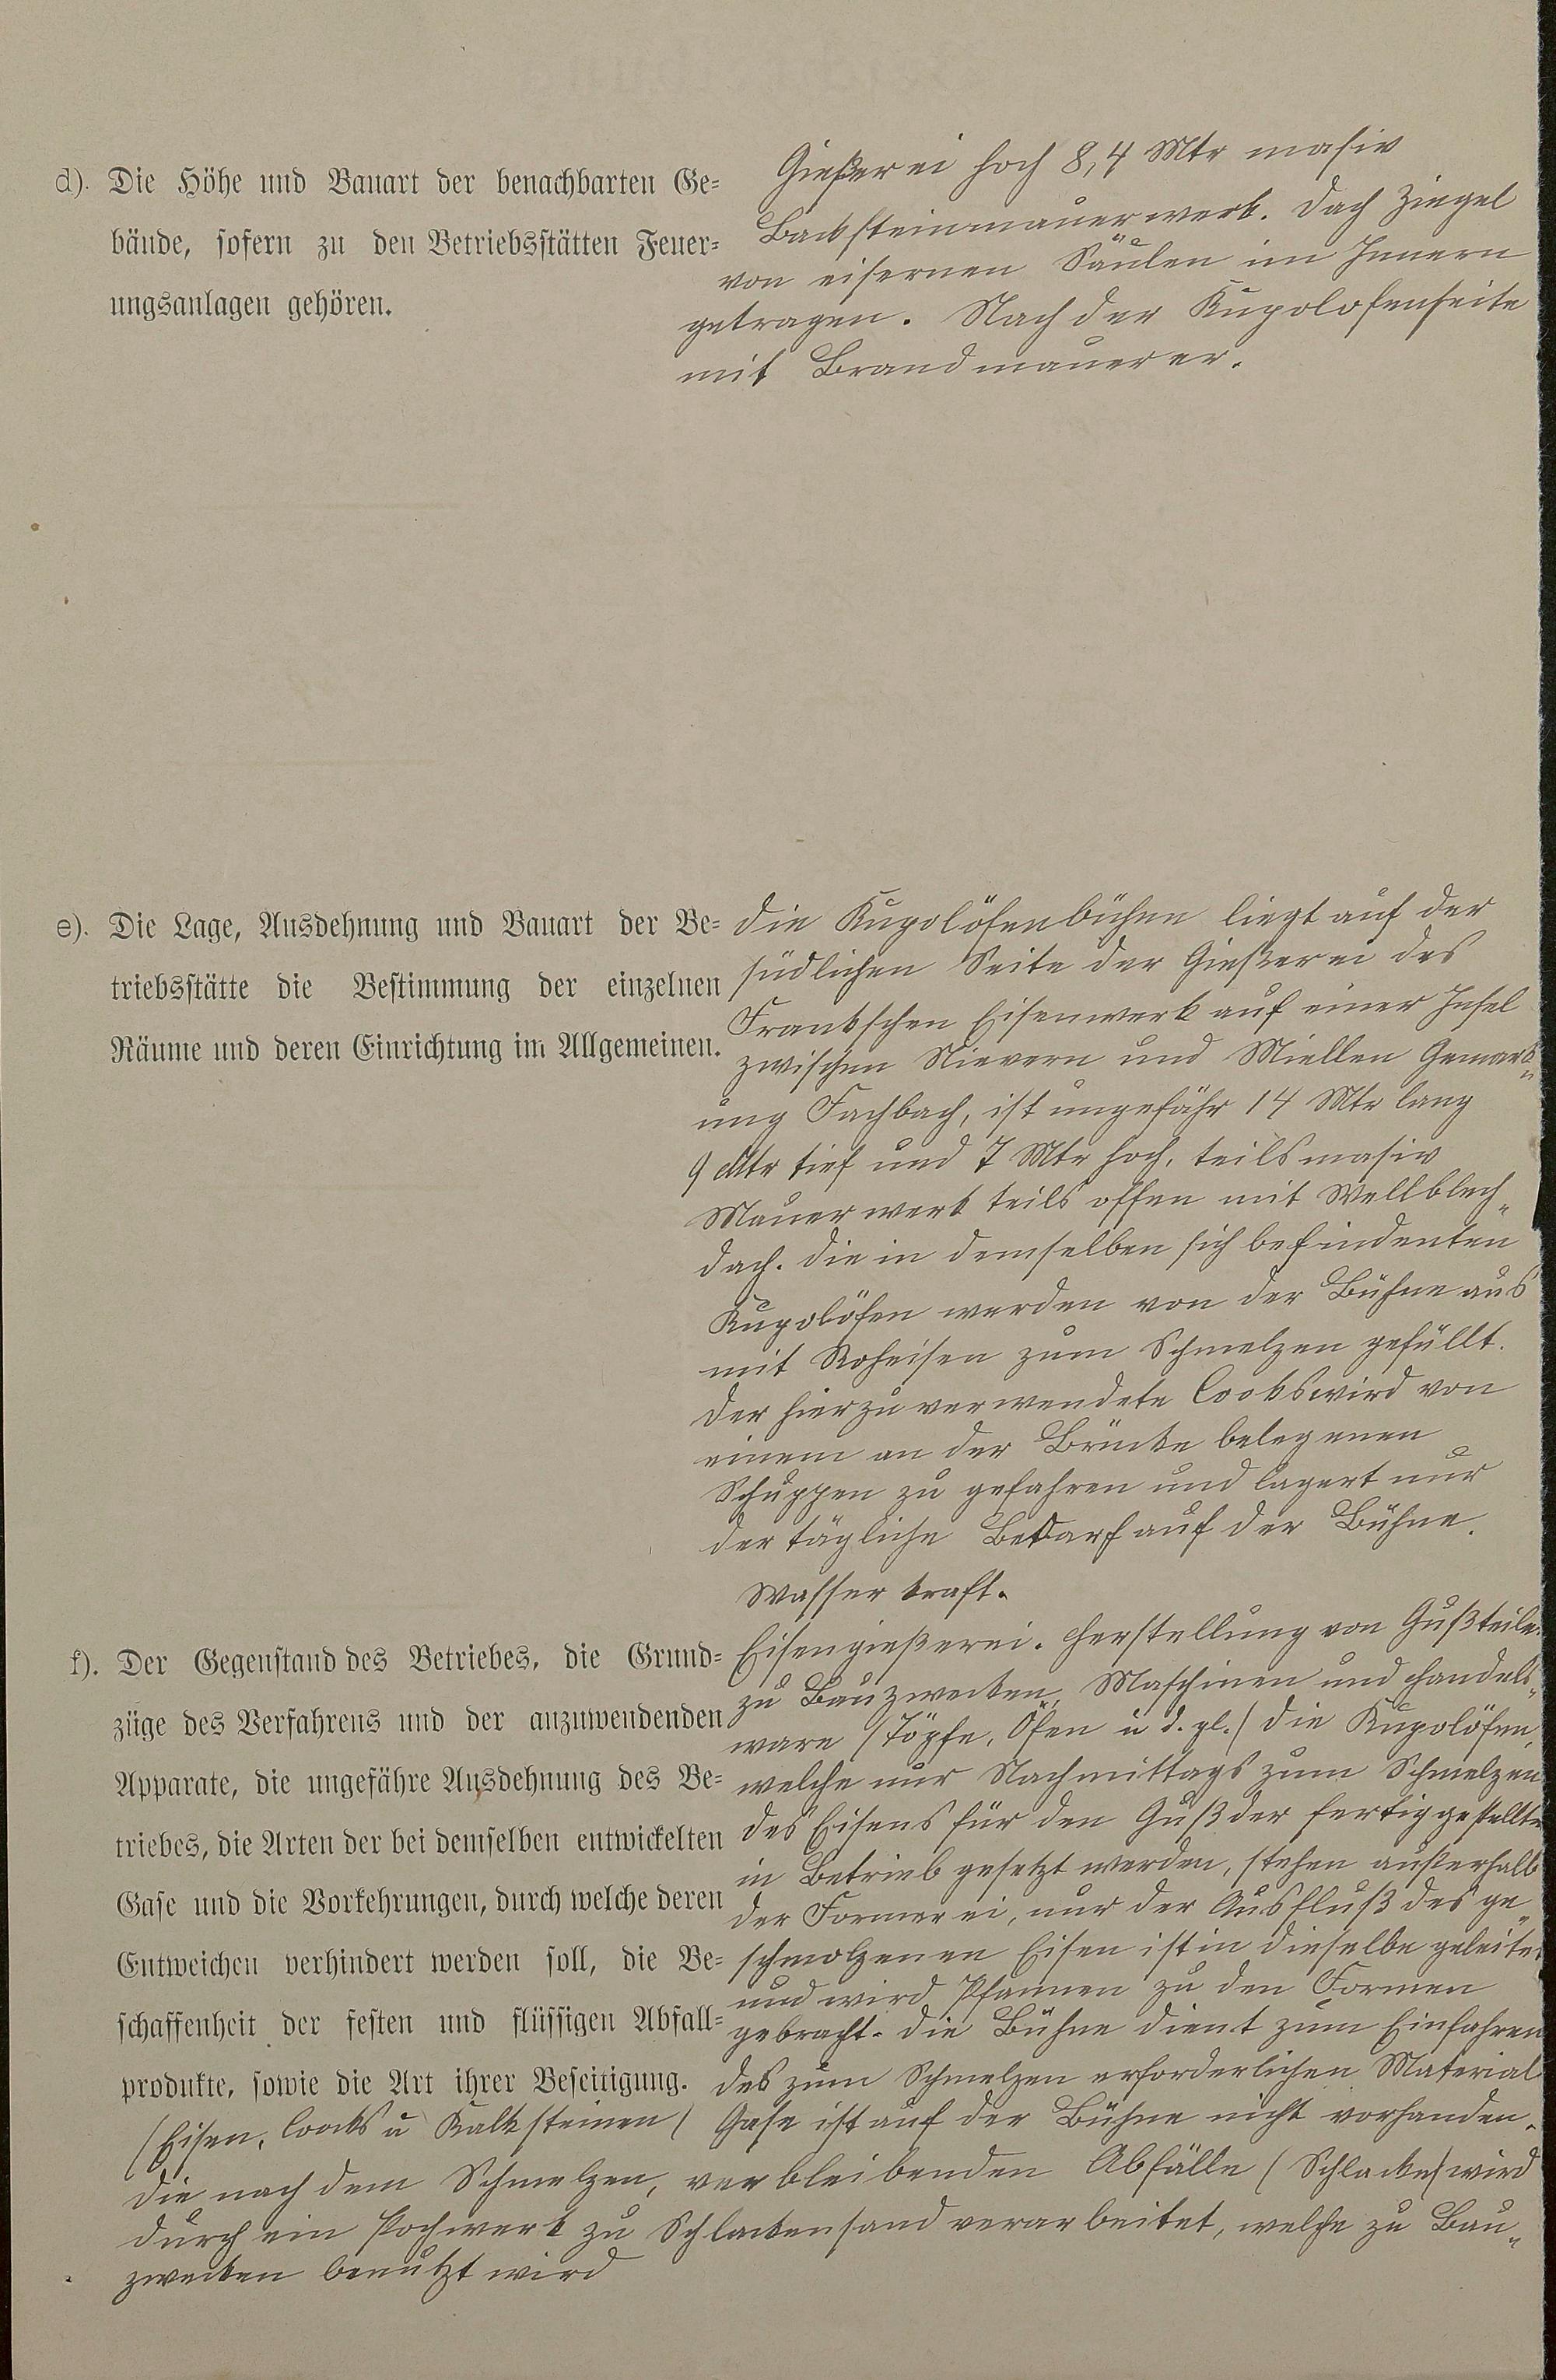 d). Die Höhe und Bauart der benachbarten Ge-
bäude, sofern zu den Betriebsstätten Feuer-
ungsanlagen gehören.
Gießerei hoch 8,4 Mtr masiv
Backsteinmauerwerk. Dach Ziegel
von eisernen Säulen im Innern
getragen. Nach der Kupolofenseite
mit Brandmauerer.
e). Die Lage, Ausdehnung und Bauart der Be-
triebsstätte die Bestimmung der einzelnen
Räume und deren Einrichtung im Allgemeinen.
Die Kupolöfenbühne liegt auf der
südlichen Seite der Gießerei des
Frankschen Eisenwerk auf einer Insel
zwischen Nievern und Miellen Gemark„
ung Fachbach, ist ungefähr 14 Mtr lang
9 Mtr tief und 7 Mtr hoch, teils masiv
Mauerwerk teils offen mit Wellblech„
dach. Die in demselben sich befindenten
Kupolöfen werden von der Bühne aus
mit Roheisen zum Schmelzen gefüllt.
Der hierzu verwendete Cooks wird von
einem an der Brücke belegenen
Schuppen zu gefahren und lagert nur
der tägliche Bedarf auf der Bühne.
Wasserkraft.
f). Der Gegenstand des Betriebes, die Grund-
züge des Verfahrens und der anzuwendenden
Apparate, die ungefähre Ausdehnung des Be-
triebes, die Arten der bei demselben entwickelten
Gase und die Vorkehrungen, durch welche deren
Entweichen verhindert werden soll, die Be-
schaffenheit der festen und flüssigen Abfall-
produkte, sowie die Art ihrer Beseitigung.
Eisengießerei. Herstellung von Gußteile
zu Bauzwecken, Maschinen und Handels„
ware (Töpfe, Öfen u d. gl.) Die Kupolöfen,
welche nur Nachmittags zum Schmelzen
des Eisens für den Guß der fertiggestellte
in Betrieb gesetzt werden, stehen außerhalb
der Formerei, nur der Ausfluß des ge„
schmolzenen Eisen ist in dieselbe geleitet
und wird Pfannen zu den Formen
gebracht. Die Bühne dient zum Einfahren
des zum Schmelzen erforderlichen Material
(Eisen, Coocks u Kalksteinen) Gase ist auf der Bühne nicht vorhanden.
Die nach dem Schmelzen, verbleibenden Abfälle (Schlacke) wird
durch ein Pochwerk zu Schlackensand verarbeitet, welche zu Bau„
zwecken benutzt wird